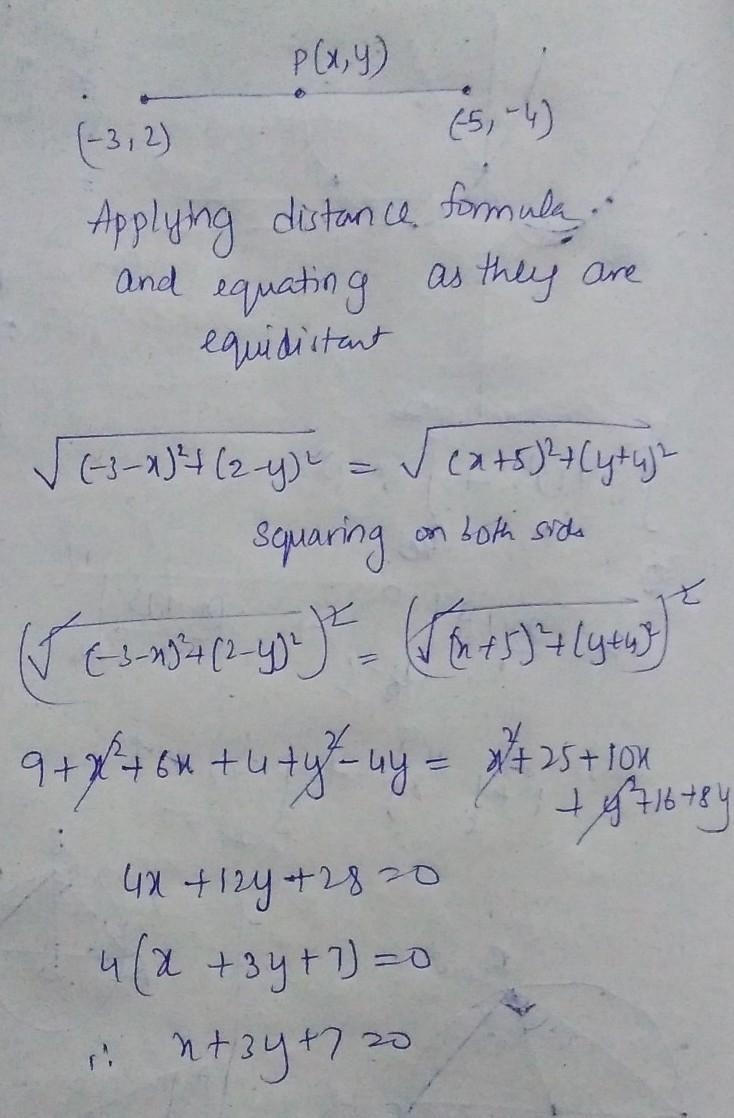 P(x,y)
(-3,2) (-5,-4)
Applying distance formula
and equating as they are
equidistant
√(-3-x)²+(2-y)² = √(x+5)²+(y+4)²
squaring on both sides
(√(-3-x)²+(2-y)²)² = (√(x+5)²+(y+4)²)²
9+x²+6x+4+y²-4y = x²+25+10x
+y²+16+8y
4x+12y+28=0
4(x+3y+7)=0
∴ x+3y+7=0